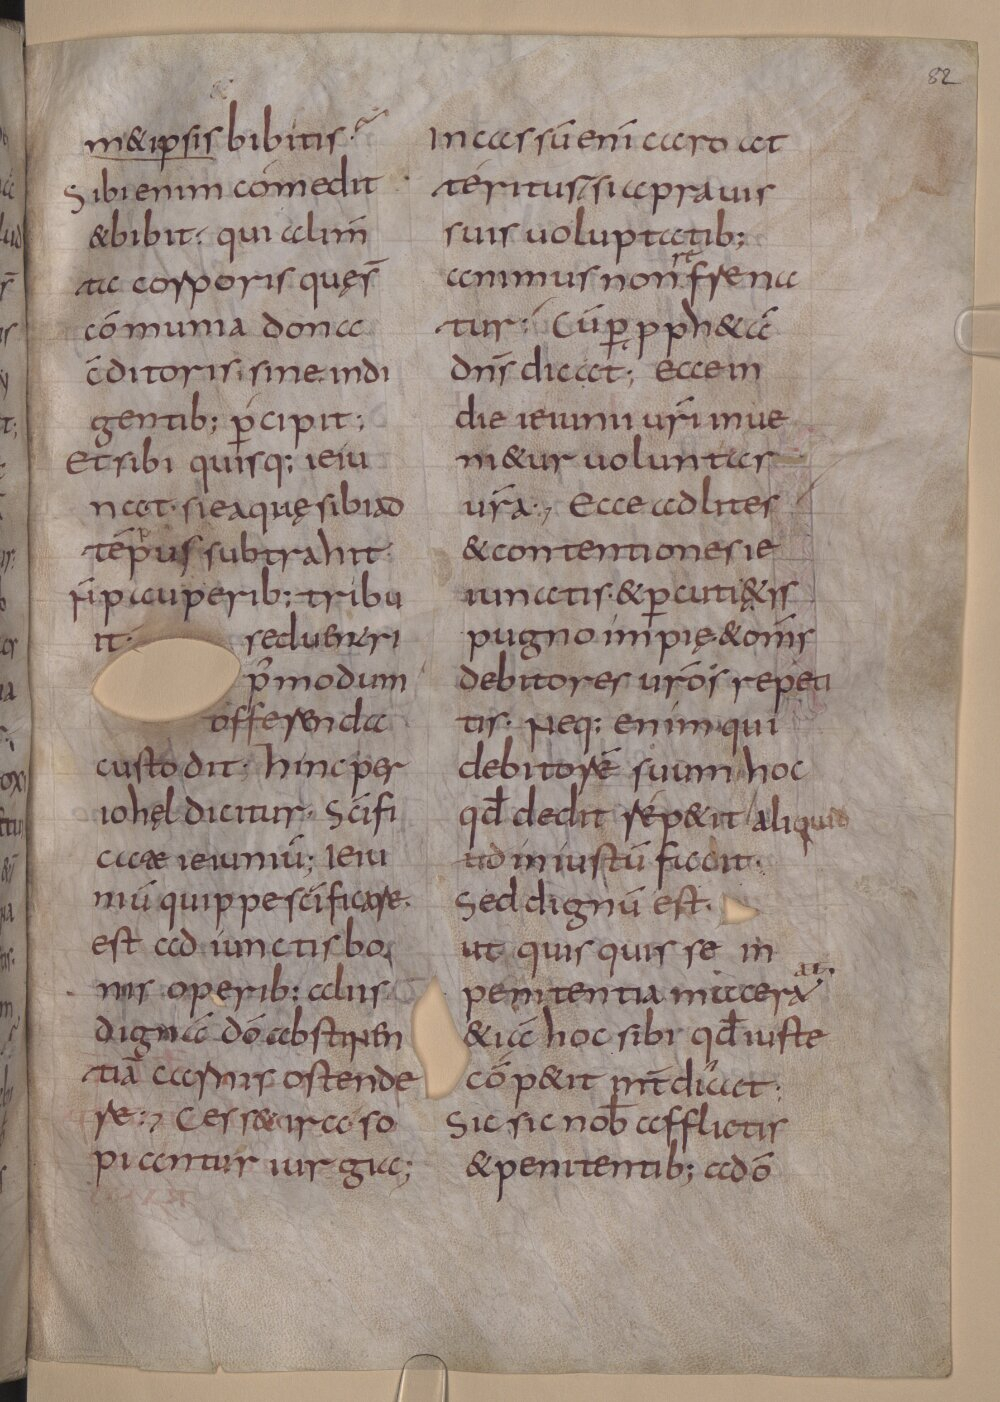 82
m&ipsis bibitis·
Sibi enim comedit
&bibit· qui alim̄
ta corporis quęs̄
cōmunia dona
c̄ditoris· sine indi
gentib; p̄cipit;
Et sibi quisq; ieiu
nat· si ea quę sibi ad
tēpus subtrahit·
n̄ pauperib; tribu
it· sed uentri
p̄modum
offerenda
custodit· hinc per
iohęl dicitur· Sc̄ifi
cate ieiuniū; Ieiu
niū quippe sc̄ificare·
est adiunctis bo
nis operib; alus
dignā dō abstinen
tiā carnis ostende
re:, Cesset ira so
piantur iurgia;
Incassū eni caro at
teritur, si a prauis
suis uoluptatib;
animus non refrena
tur· Cū p̱ pph&ā
dn̄s dicat; Ecce in
die ieiunii ur̄i inue
ni&ur uoluntas
ur̄a·, Ecce ad lites
&contentiones ie
iunatis· &p̱cuti&is
pugno impię·&om̄s
debitores ur̄os repeti
tis· Neq; enim qui
debitorē suum hoc
qđ dedit rep&it aliquid
ad iniustū facit·
Sed dignū est·
ut quis quis se in
penitentia macerat
&iā hoc sibi qđ iuste
cōp&it int̄dicat·
Sic sic nob̄ afflictis
&penitentib; a dō